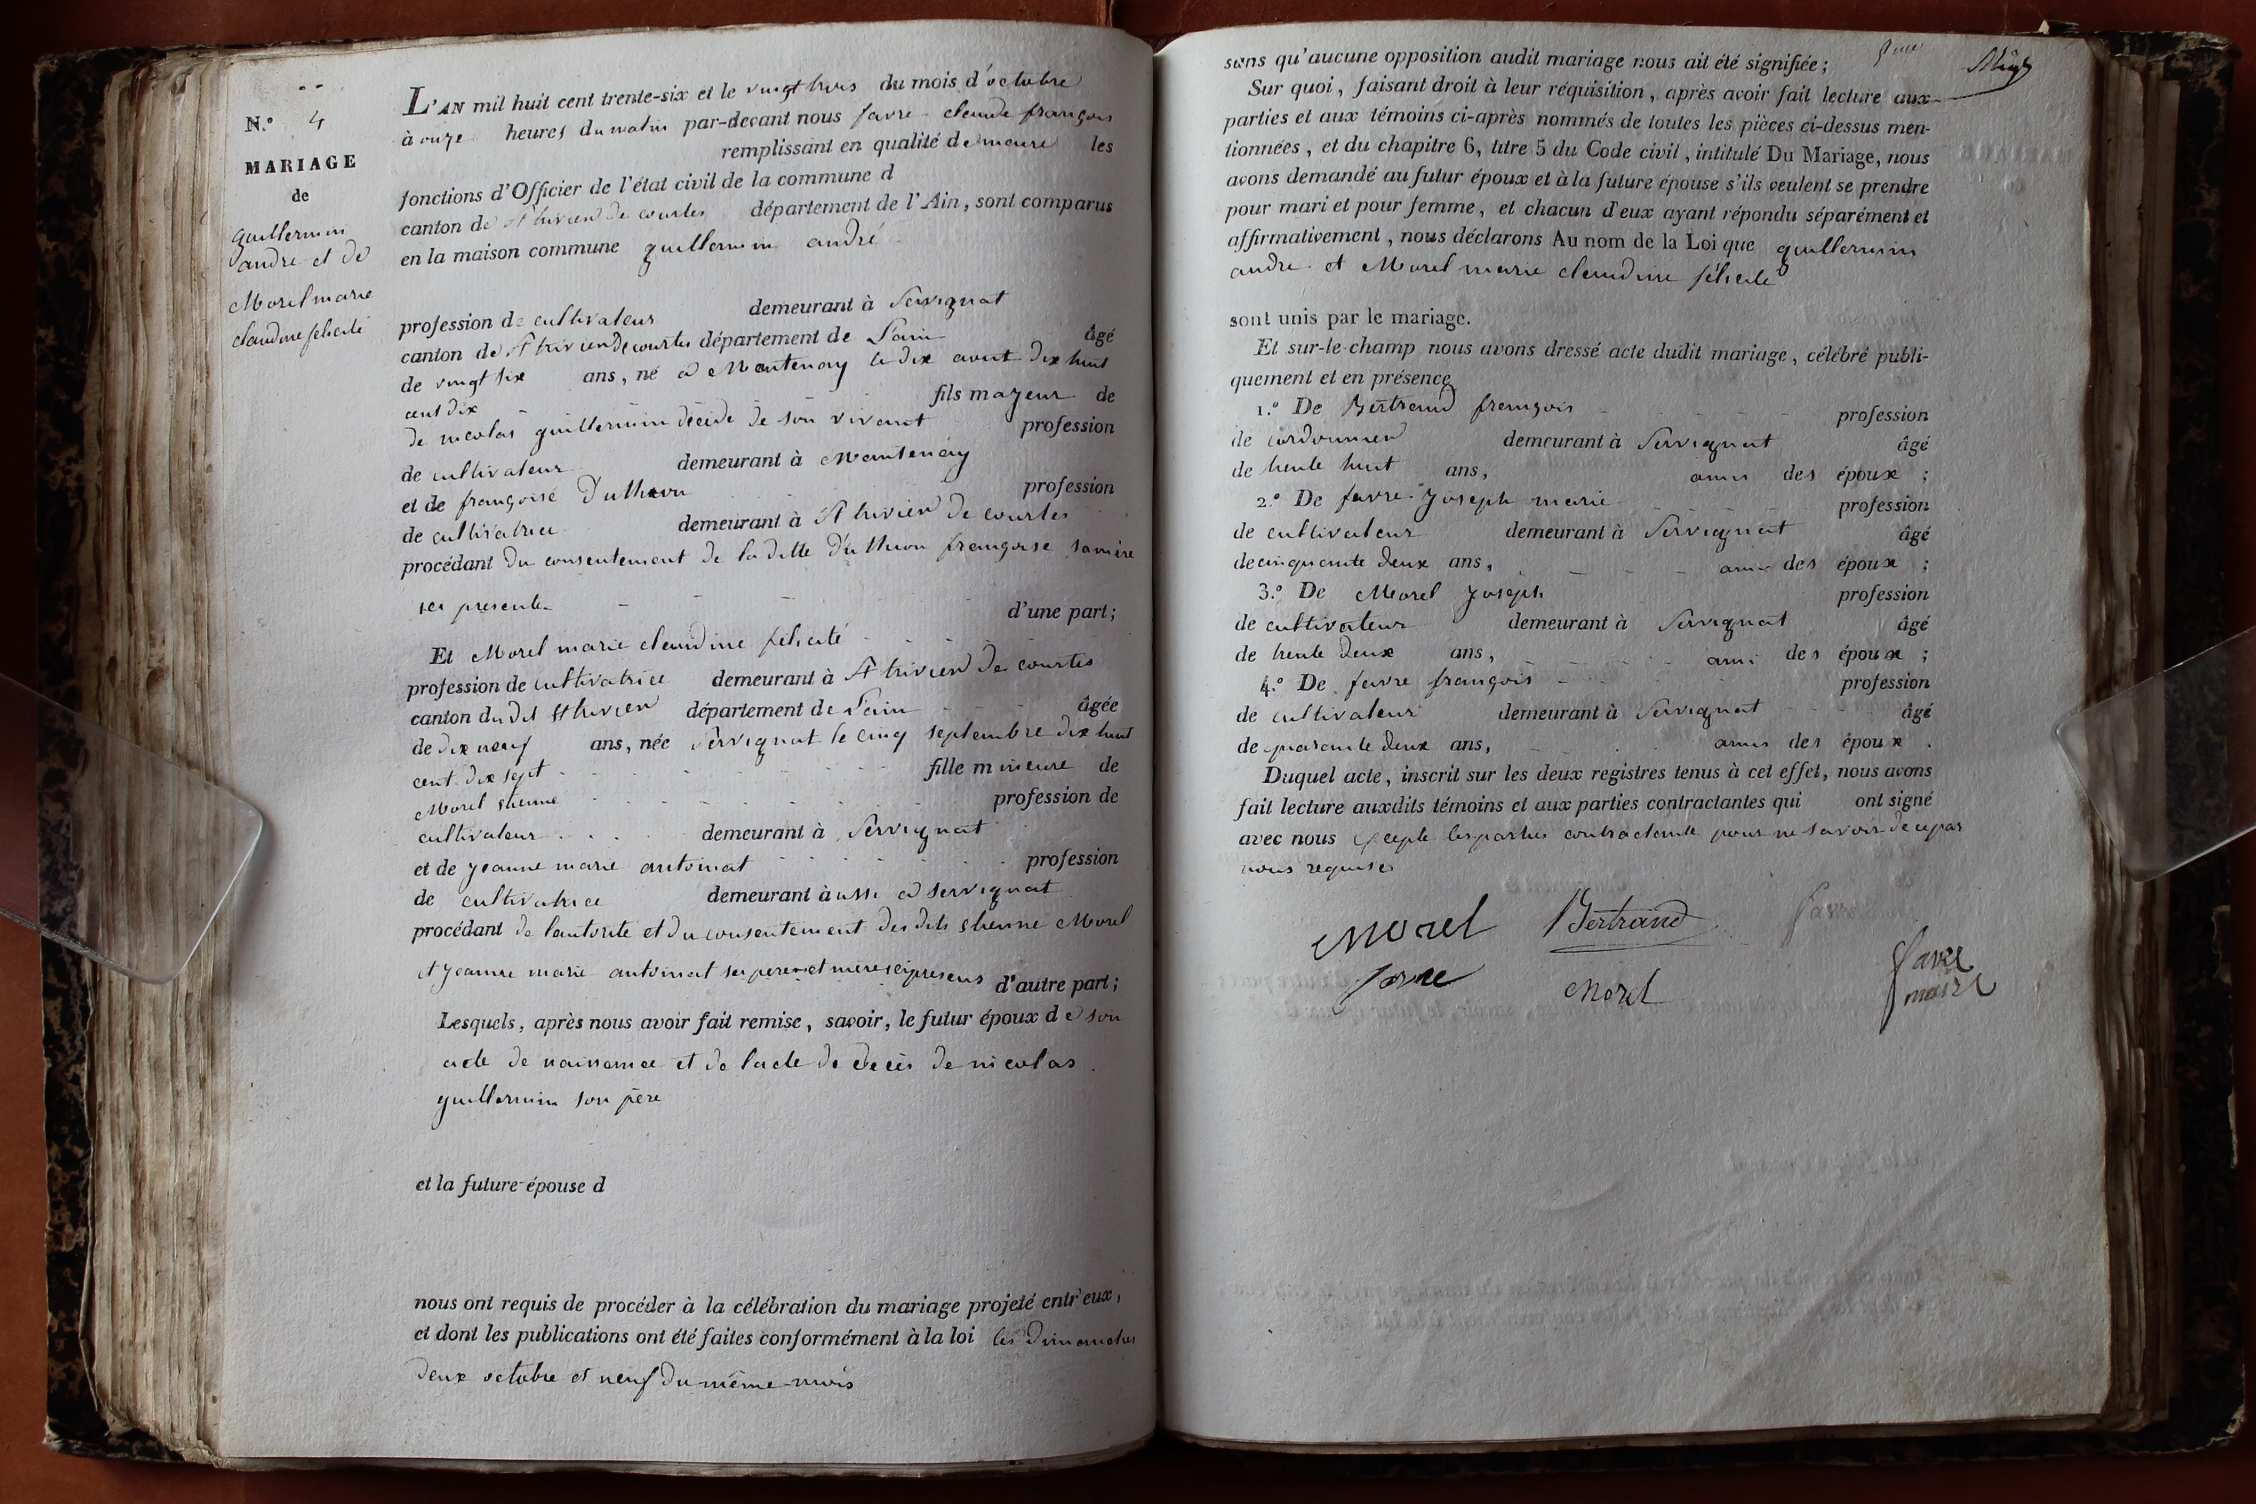 N.º 4
MARIAGE
de
guillermin
andre et de
Morel marie
claudine felicité
L'AN mil huit cent trente-six et le vingt trois du mois d'octobre
à onze heures du matin par-devant nous favre claude françois
remplissant en qualité de maire les
fonctions d'Officier de l'état civil de la commune d
canton de St trivier de courtes département de l'Ain, sont comparus
en la maison commune guillermin andré
profession de cultivateur demeurant à Servignat
canton de St trivier de courtes département de l'ain âgé
de vingt six ans, né a Mantenay le dix avout dix huit
cent dix fils majeur de
de nicolas guillermin décédé de son vivant profession
de cultivateur demeurant à Mantenay
et de françoise Duthion profession
de cultivatrice demeurant à St trivier de courtes
procédant du consentement de la ditte duthion françoise sa mère
ici presente d'une part;
Et Morel marie claudine felicité
profession de cultivatrice demeurant à St trivier de courtes
canton du dit St trivier département de l'ain âgée
de dix neuf ans, née Servignat le cinq septembre dix huit
cent dix sept fille mineure de
Morel etienne profession de
cultivateur demeurant à Servignat
et de jeanne marie antoinat profession
de cultivatrice demeurant à ussi a servignat
procédant de lautorité et du consentement des dits etienne Morel
et jeanne marie antoinat ses pere et mere ici presens d'autre part;
Lesquels, après nous avoir fait remise, savoir, le futur époux de son
acte de naissance et de lacte de decès de nicolas
guillermin son père
et la future épouse d
nous ont requis de procéder à la célébration du mariage projeté entr'eux,
et dont les publications ont été faites conformément à la loi les dimanches
deux octobre et neuf du même mois
sans qu'aucune opposition audit mariage nous ait été signifiée;
Sur quoi, faisant droit à leur réquisition, après avoir fait lecture aux
parties et aux témoins ci-après nommés de toutes les pièces ci-dessus men-
tionnées, et du chapitre 6, titre 5 du Code civil, intitulé Du Mariage, nous
avons demandé au futur époux et à la future épouse s'ils veulent se prendre
pour mari et pour femme, et chacun d'eux ayant répondu séparément et
affirmativement, nous déclarons Au nom de la Loi que guillermin
andre et Morel marie claudine félicité
sont unis par le mariage.
Et sur-le-champ nous avons dressé acte dudit mariage, célébré publi-
quement et en présence
1.º De Bertrand françois profession
de cordonnier demeurant à Servignat âgé
de trente huit ans, amis des époux ;
2.º De favre Joseph marie profession
de cultivateur demeurant à Servignat âgé
de cinquante deux ans, amis des époux ;
3.º De Morel Joseph profession
de cultivateur demeurant à Servignat âgé
de trente deux ans, ami des époux ;
4.º De favre françois profession
de cultivateur demeurant à Servignat âgé
de quarante deux ans, amis des époux .
Duquel acte, inscrit sur les deux registres tenus à cet effet, nous avons
fait lecture auxdits témoins et aux parties contractantes qui ont signé
avec nous excepté les parties contractante pour ne savoir de ce par
nous requises
Morel Bertrand favre
favre Morel favre
maire